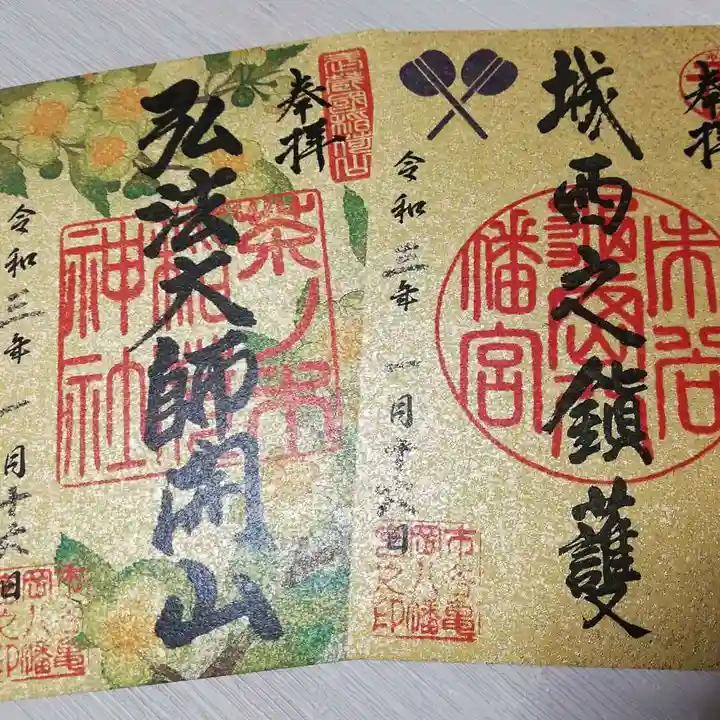 奉拝
城西之鎮護
令和三年 一月十六日
市谷
亀岡八
幡宮
市谷亀
岡八幡
宮之印
奉拝
弘法大師開山
令和三年 一月十六日
茶ノ木
稲荷
神社
市谷亀
岡八幡
宮之印